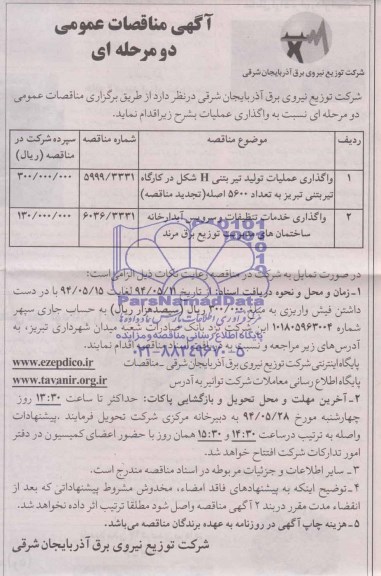 آگهی مناقصات عمومی
دو مرحله ای
شرکت توزیع نیروی برق آذربایجان شرقی
شرکت توزیع نیروی برق آذربایجان شرقی درنظر دارد از طریق برگزاری مناقصات عمومی
دو مرحله ای نسبت به واگذاری عملیات بشرح زیراقدام نماید.
ردیف موضوع مناقصه شماره مناقصه سپرده شرکت در مناقصه (ریال)
۱ واگذاری عملیات تولید تیر بتنی H شکل در کارگاه تیربتنی تبریز به تعداد ۵۶۰۰ اصله(تجدید مناقصه) ۵۹۹۹/۳۳۳۱ ۳۰۰/۰۰۰/۰۰۰
۲ واگذاری خدمات تنظیفات و سرویس آبدارخانه ساختمان های مدیریت توزیع برق مرند ۶۰۳۶/۳۳۳۱ ۱۳۰/۰۰۰/۰۰۰
در صورت تمایل به شرکت در مناقصه رعایت نکات ذیل الزامی است:
۱-زمان و محل و نحوه دریافت اسناد: از تاریخ ۹۴/۰۵/۱۱ لغایت ۹۴/۰۵/۱۵ با در دست
داشتن فیش واریزی به مبلغ ۳۰۰/۰۰۰ ریال (سیصدهزار ریال) به حساب جاری سپهر
شماره ۰۱۰۱۸۰۵۹۶۳۰۰۴ این شرکت نزد بانک صادرات شعبه میدان شهرداری تبریز، به
آدرس‌های زیر مراجعه و نسبت به دریافت اسناد مناقصه اقدام نمایند.
پایگاه اینترنتی شرکت توزیع نیروی برق آذربایجان شرقی -مناقصات www.ezepdico.ir
پایگاه اطلاع رسانی معاملات شرکت توانیر به آدرس www.tavanir.org.ir
۲-آخرین مهلت و محل تحویل و بازگشایی پاکات: حداکثر تا ساعت ۱۳:۳۰ روز
چهارشنبه مورخ ۹۴/۰۵/۲۸ به دبیرخانه مرکزی شرکت تحویل فرمایند .پیشنهادات
واصله به ترتیب درساعت ۱۴:۳۰ و ۱۵:۳۰ همان روز با حضور اعضای کمیسیون در دفتر
امور تدارکات شرکت افتتاح خواهد شد.
۳- سایر اطلاعات و جزئیات مربوطه در اسناد مناقصه مندرج است.
۴-توضیح اینکه به پیشنهادهای فاقد امضاء، مخدوش مشروط پیشنهاداتی که بعد از
انقضاء مدت مقرر دربند ۲ آگهی مناقصه واصل شود مطلقا ترتیب اثر داده نخواهد شد.
۵-هزینه چاپ آگهی در روزنامه به عهده برندگان مناقصه می‌باشد.
شرکت توزیع نیروی برق آذربایجان شرقی
ParsNamadData
پایگاه اطلاع رسانی مناقصه و مزایده
۰۲۱-۸۸۳۴۹۶۷۰-۵